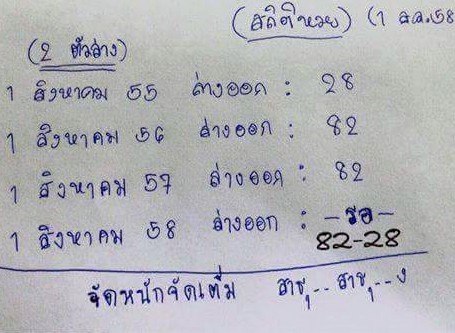 (สถิติหวย) (1 ส.ค.58
(2 ตัวล่าง)
1 สิงหาคม 55 ล่างออก : 28
1 สิงหาคม 56 ล่างออก : 82
1 สิงหาคม 57 ล่างออก : 82
1 สิงหาคม 58 ล่างออก : -รอ-
82-28
จัดหนักจัดเต็ม สาธุ... สาธุ...ๆ